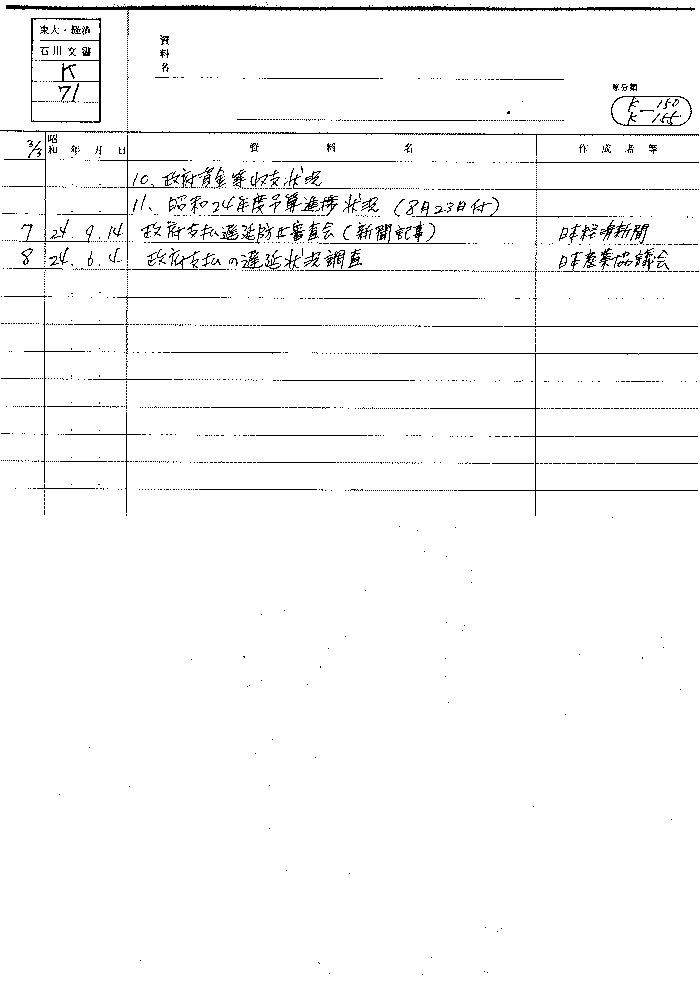 東大・経済
石川文書
K
71
資料名
原分類
K-150
K-155
3/3 昭和 年 月 日 資料名 作成者等
10. 政府資金等収支状況
11. 昭和24年度予算進捗状況 (8月23日付)
7 24. 9. 14 政府支払遅延防止審査会(新聞記事) 日本経済新聞
8 24. 6. 4 政府支払の遅延状況調査 日本産業協議会